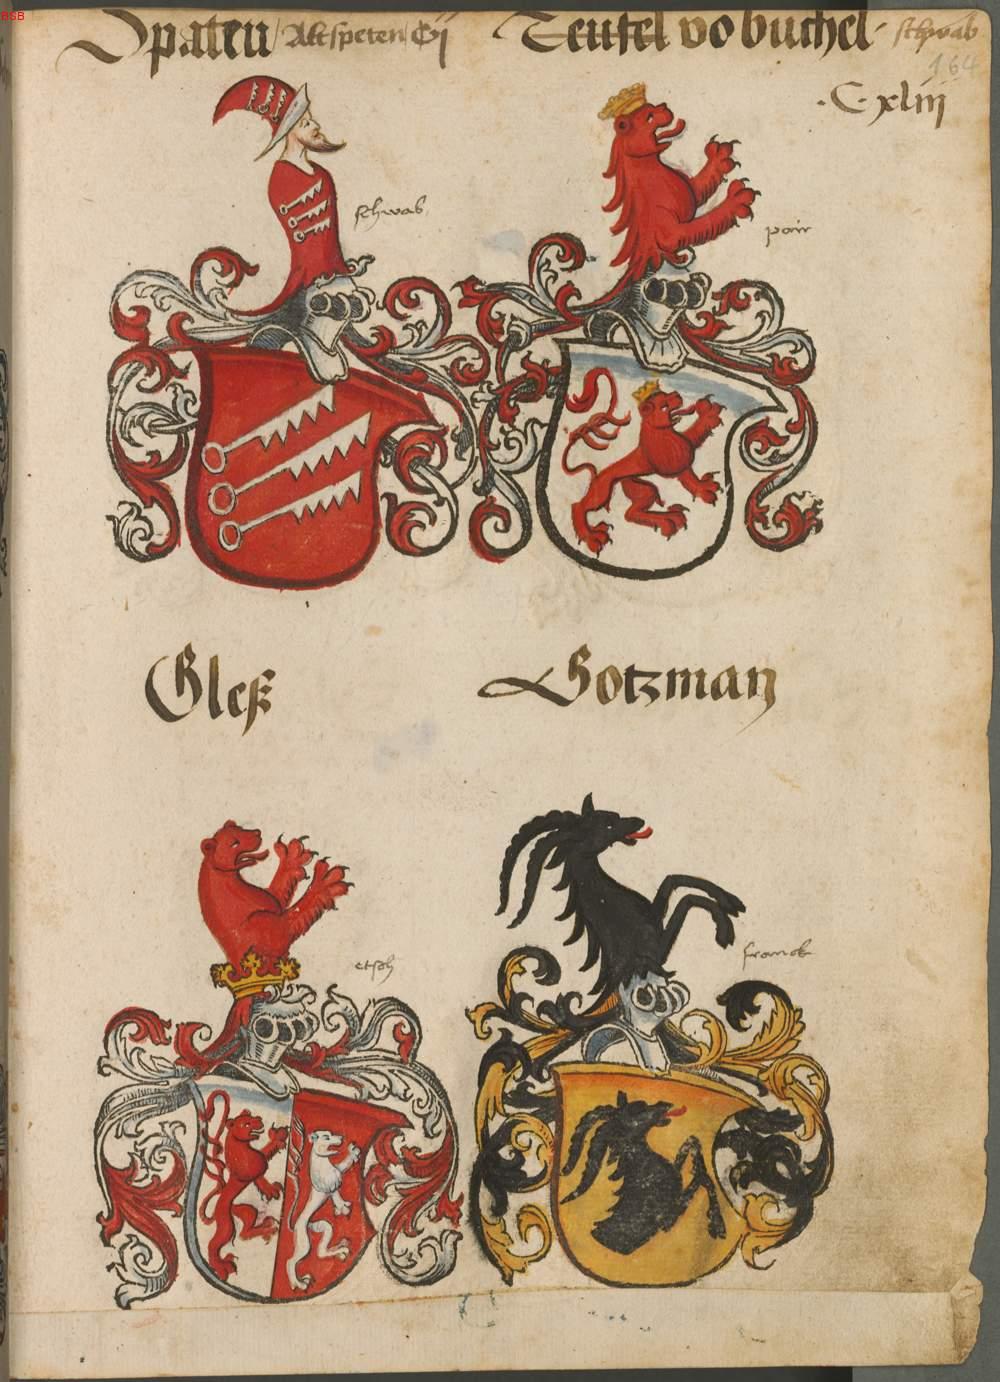 BSB
Spaten / Altspeten Cij Teufel vo buchel schwab
164
· C · xliij
schwab
pair
Gleß
Gotzman
etsch
franck